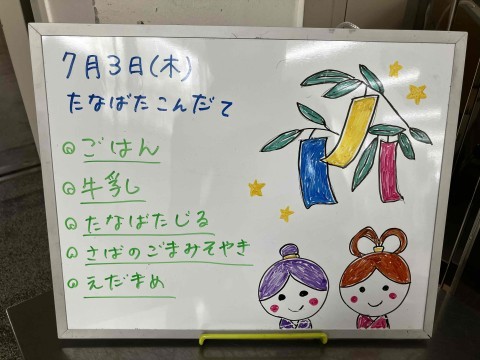 7月3日(木)
たなばたこんだて
ごはん
牛乳
たなばたじる
さばのごまみそやき
えだまめ